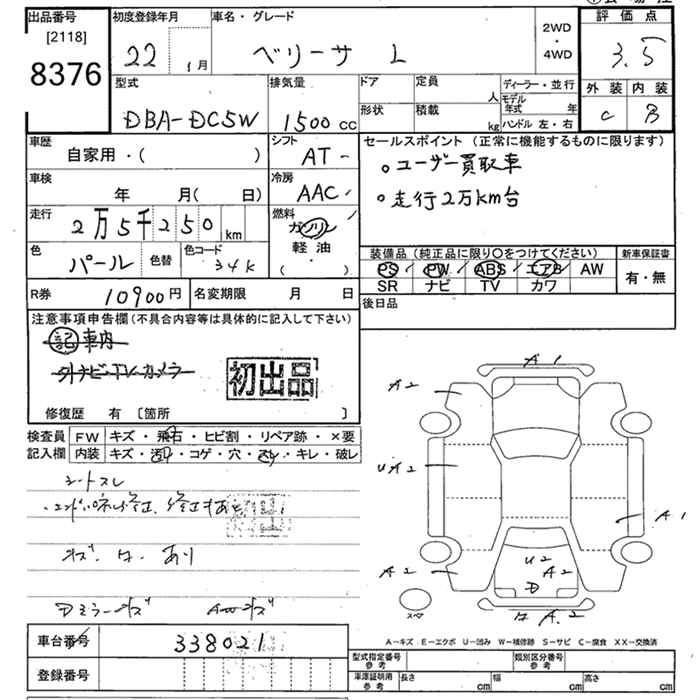 出品番号
[2118]
8376
初度登録年月
22 1月
車名・グレード
ベリーサ L
2WD
・
4WD
評価点
3.5
外装 内装
C B
型式
DBA-DC5W
排気量
1500cc
ドア
形状
定員
人
積載
kg
ディーラー・並行
モデル年式 年
ハンドル 左・右
車歴
自家用・( )
シフト
AT-
車検
年 月( 日)
冷房
AAC
走行
2万5千250 km
燃料
ガソリン
軽油
( ・ )
色
パール
色替
色コード
34K
R券
10900円
名変期限 月 日
セールスポイント(正常に機能するものに限ります)
○ユーザー買取車
○走行2万km台
装備品(純正品に限り○をつけてください)
PS PW ABS エアB AW
SR ナビ TV カワ
新車保証書
有・無
後日品
注意事項申告欄(不具合内容等は具体的に記入して下さい)
記車内
外ナビ・TV・カメラ
初出品
修復歴 有 〔箇所 〕
検査員記入欄
FW キズ・飛石・ヒビ割・リペア跡・×要
内装 キズ・汚れ・コゲ・穴・スレ・キレ・破レ
シートスレ
キズ・ワ・あり
Dミラーキズ AWキズ
車台番号
338021
登録番号
A1
A2
UA2
A1
A2
U2
A2
D
A2
A.2
スペア
A-キズ E-エクボ U-凹み W-補修跡 S-サビ C-腐食 XX-交換済
型式指定番号参考
類別区分番号参考
車庫証明用参考
長さ cm 幅 cm 高さ cm